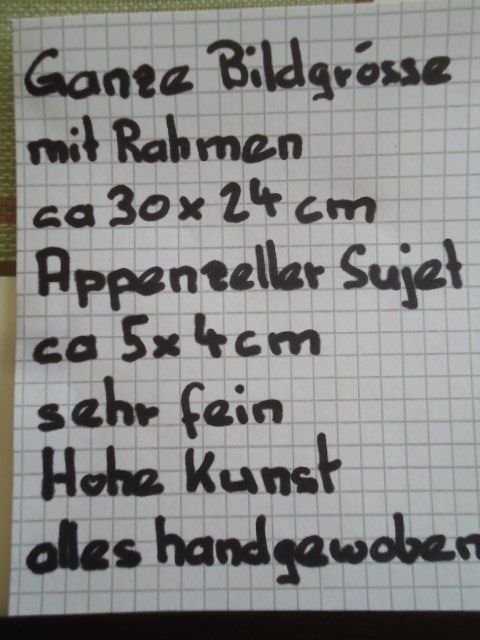 Ganze Bildgrösse
mit Rahmen
ca 30x24 cm
Appenzeller Sujet
ca 5x4cm
sehr fein
Hohe Kunst
alles handgewoben